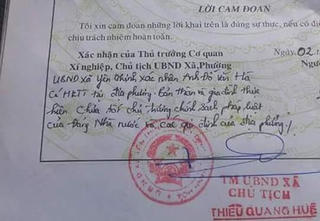 LỜI CAM ĐOAN
Tôi xin cam đoan những lời khai trên là đúng sự thực, nếu có điề
chịu trách nhiệm hoàn toàn.
Xác nhận của Thủ trưởng Cơ quan
Ngày 02
Xí nghiệp, Chủ tịch UBND Xã,Phường
UBND xã Yên Chính xác nhận Anh Đỗ Văn Hà
Có HKTT tại địa phương. Bản thân và gia đình thực
hiện Chấp tốt chủ trương chính sách pháp luật
của Đảng Nhà nước và các qui định của địa phương
TM UBND XÃ
CHỦ TỊCH
THIỀU QUANG HUẾ